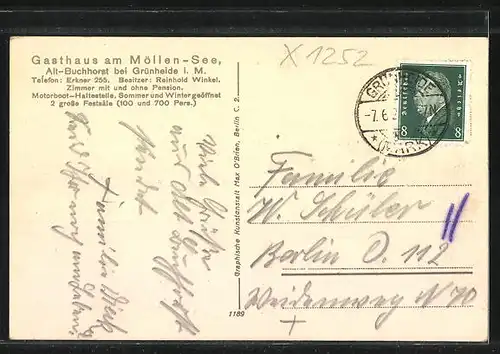 Gasthaus am Möllen-See,
Alt-Buchhorst bei Grünheide i. M.
Telefon: Erkner 255. Besitzer: Reinhold Winkel.
Zimmer mit und ohne Pension.
Motorboot-Haltestelle. Sommer und Winter geöffnet
2 große Festsäle (100 und 700 Pers.)
X 1252
(MARK)
8 8
Graphische Kunstanstalt Max O'Brien, Berlin C. 2.
1189
Viele Grüße
aus Alt Buchhorst
sendet
Familie
W. Schüler
Berlin O. 112
Weidenweg N 70